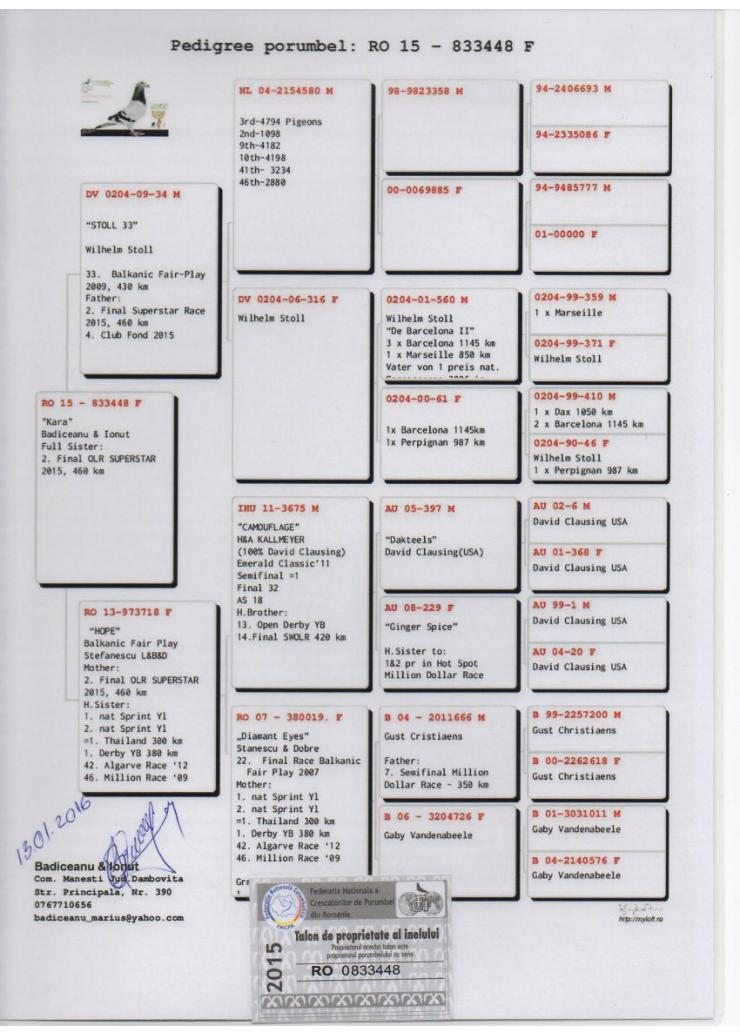 Pedigree porumbel: RO 15 - 833448 F
RO 15 - 833448 F
"Kara"
Badiceanu & Ionut
Full Sister:
2. Final OLR SUPERSTAR
2015, 460 km
DV 0204-09-34 M
"STOLL 33"
Wilhelm Stoll
33. Balkanic Fair-Play
2009, 430 km
Father:
2. Final Superstar Race
2015, 460 km
4. Club Fond 2015
RO 13-973718 F
"HOPE"
Balkanic Fair Play
Stefanescu L&B&D
Mother:
2. Final OLR SUPERSTAR
2015, 460 km
H.Sister:
1. nat Sprint Yl
2. nat Sprint Yl
=1. Thailand 300 km
1. Derby YB 380 km
42. Algarve Race '12
46. Million Race '09
NL 04-2154580 M
3rd-4794 Pigeons
2nd-1098
9th-4182
10th-4198
41th- 3234
46th-2880
DV 0204-06-316 F
Wilhelm Stoll
IHU 11-3675 M
"CAMOUFLAGE"
H&A KALLMEYER
(100% David Clausing)
Emerald Classic'11
Semifinal =1
Final 32
AS 18
H.Brother:
13. Open Derby YB
14.Final SWOLR 420 km
RO 07 - 380019. F
„Diamant Eyes"
Stanescu & Dobre
22. Final Race Balkanic
Fair Play 2007
Mother:
1. nat Sprint Yl
2. nat Sprint Yl
=1. Thailand 300 km
1. Derby YB 380 km
42. Algarve Race '12
46. Million Race '09
98-9823358 M
00-0069885 F
0204-01-560 M
Wilhelm Stoll
"De Barcelona II"
3 x Barcelona 1145 km
1 x Marseille 850 km
Vater von 1 preis nat.
0204-00-61 F
1x Barcelona 1145km
1x Perpignan 987 km
AU 05-397 M
"Dakteels"
David Clausing(USA)
AU 08-229 F
"Ginger Spice"
H.Sister to:
1&2 pr in Hot Spot
Million Dollar Race
B 04 - 2011666 M
Gust Cristiaens
Father:
7. Semifinal Million
Dollar Race - 350 km
B 06 - 3204726 F
Gaby Vandenabeele
94-2406693 M
94-2335086 F
94-9485777 M
01-00000 F
0204-99-359 M
1 x Marseille
0204-99-371 F
Wilhelm Stoll
0204-99-410 M
1 x Dax 1050 km
2 x Barcelona 1145 km
0204-90-46 F
Wilhelm Stoll
1 x Perpignan 987 km
AU 02-6 M
David Clausing USA
AU 01-368 F
David Clausing USA
AU 99-1 M
David Clausing USA
AU 04-20 F
David Clausing USA
B 99-2257200 M
Gust Christiaens
B 00-2262618 F
Gust Christiaens
B 01-3031011 M
Gaby Vandenabeele
B 04-2140576 F
Gaby Vandenabeele
13.01.2016
Badiceanu & Ionut
Com. Manesti Jud.Dambovita
Str. Principala, Nr. 390
0767710656
badiceanu_marius@yahoo.com
Federatia Nationala a
Crescatorilor de Porumbei
din Romania
Talon de proprietate al inelului
Proprietarul acestui talon este
proprietarul porumbelului cu seria
2015
RO 0833448
http://myloft.ro